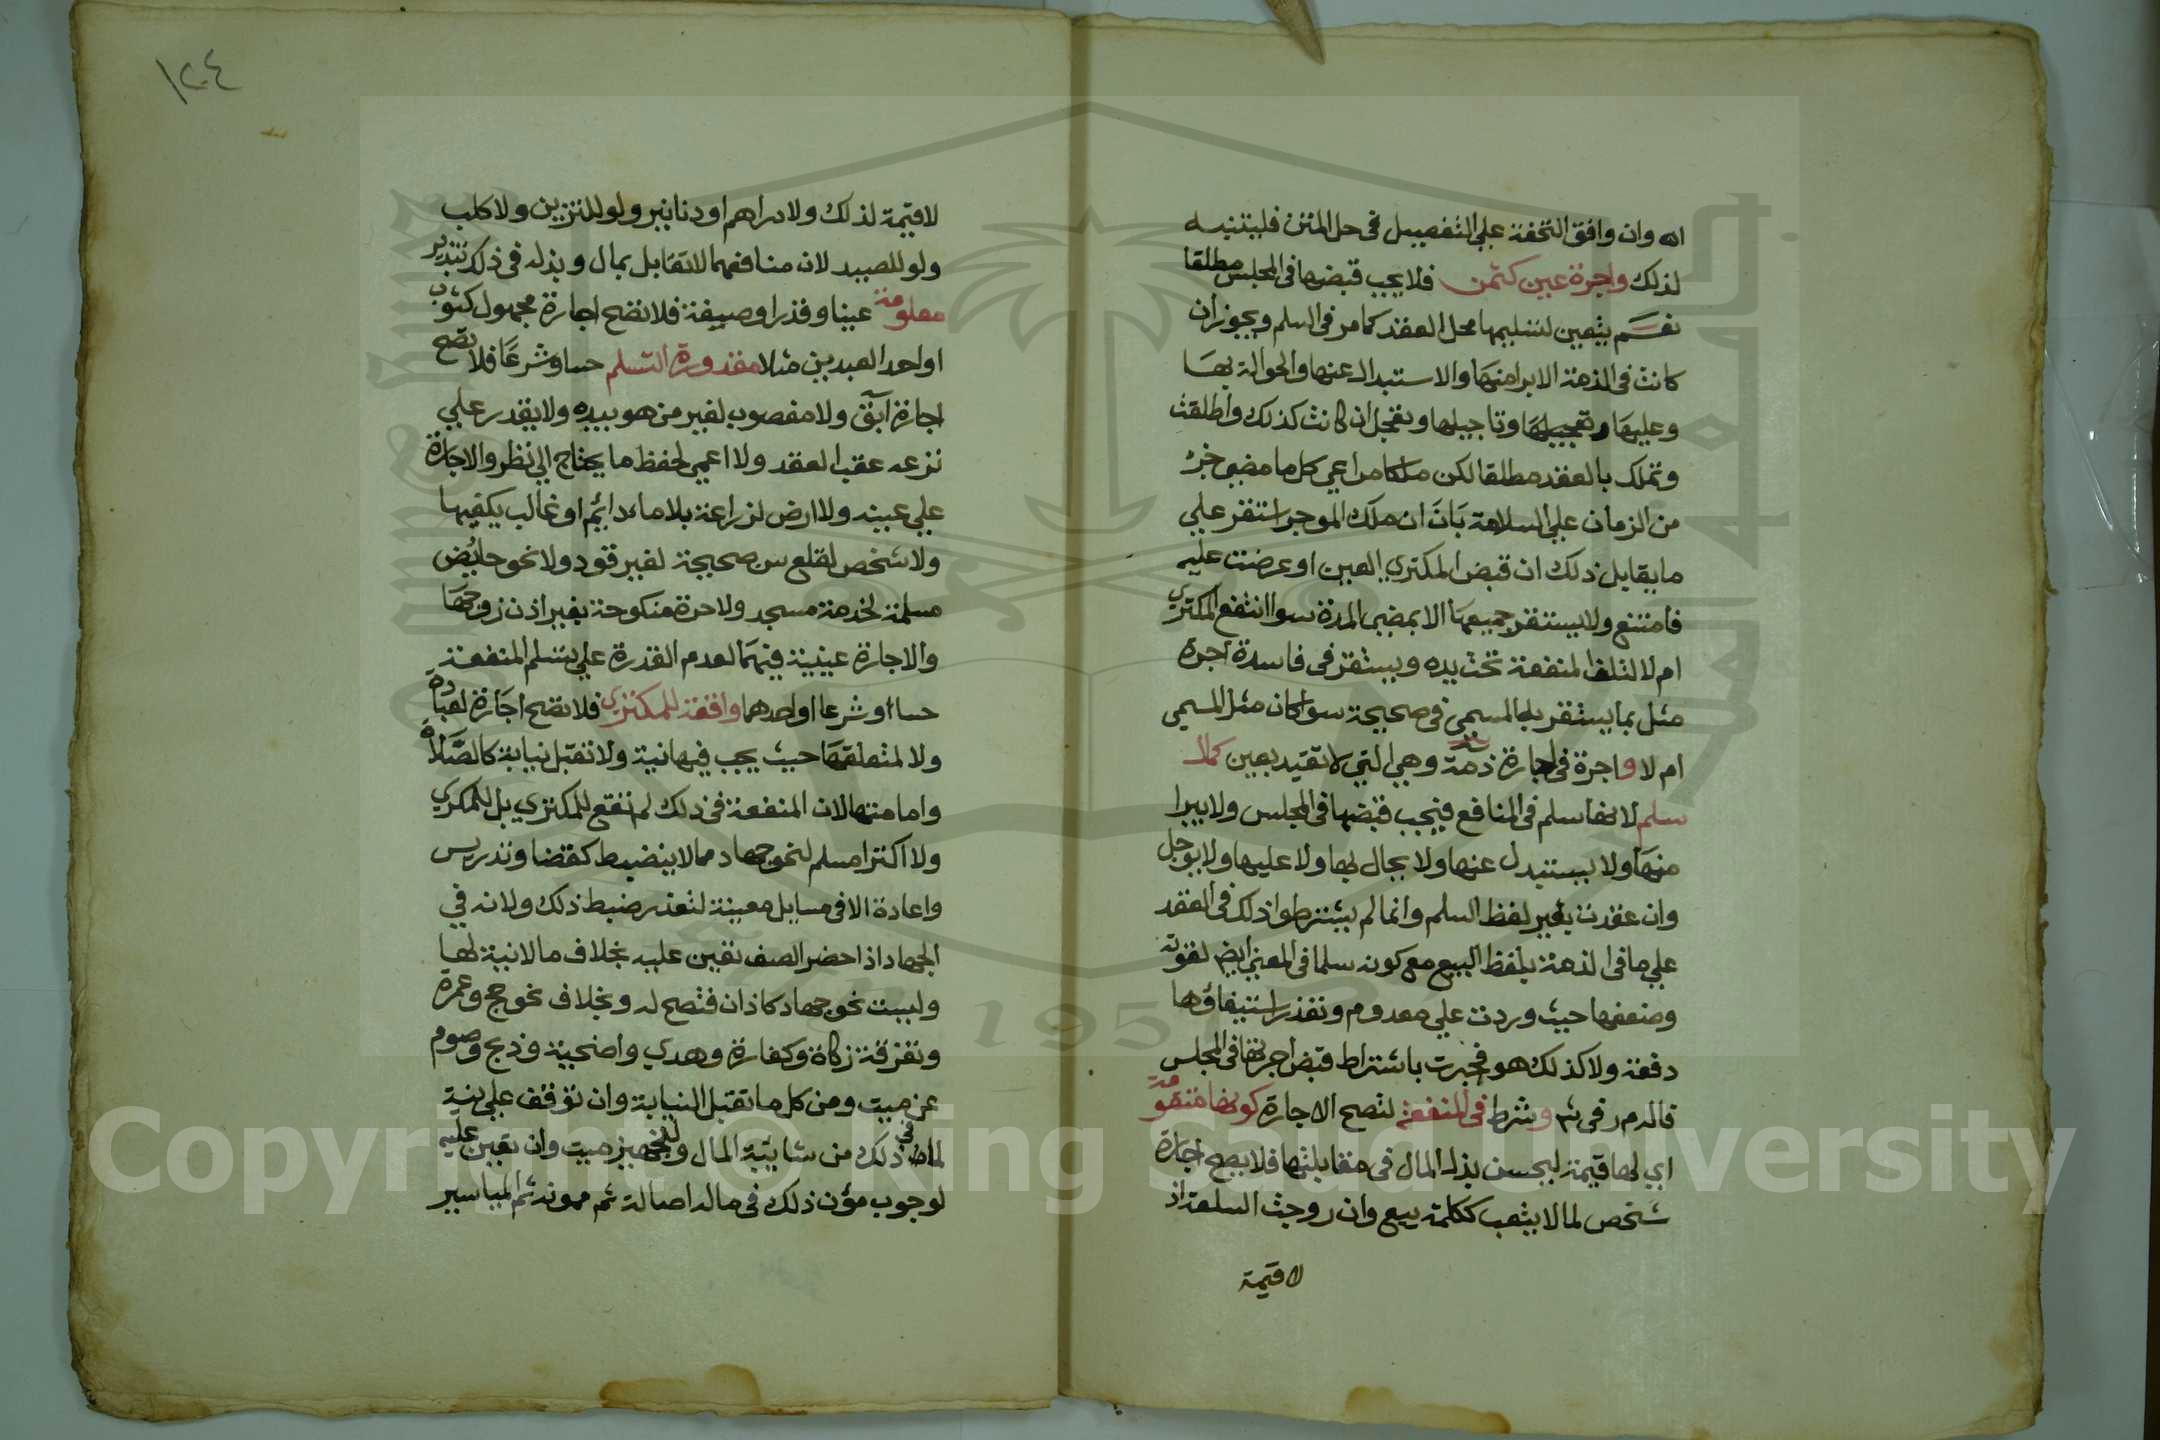 اه وان وافق التحفة علي التفصيل في حل المتن فليتنبه
لذلك واجرة عين كثمن فلا يجب قبضها في المجلس مطلقا
نعم يتعين لتسليمها محل العقد كما مر في السلم ويجوز ان
كانت في الذمة الابرا منها والاستبدال عنها والحوالة بها
وعليها وتعجيلها وتاجيلها وتعجل ان كانت كذلك واطلقت
وتملك بالعقد مطلقا لكن ملكا مراعي كل ما مضي جز
من الزمان علي السلامة بان ان ملك الموجر استقر علي
ما يقابل ذلك ان قبض المكتري العين او عرضت عليه
فامتنع ولا يستقر جميعها الا بمضي المدة سوا انتفع المكتري
ام لا لتلف المنفعة تحت يده ويستقر في فاسدة اجرة
مثل بما يستقر به المسمي في صحيحة سوا كان مثل المسمي
ام لا واجرة في اجارة ذمة وهي التي لا تقيد بعين كمال
سلم لانها سلم في المنافع فيجب قبضها في المجلس ولا يبرا
منها ولا يستبدل عنها ولا يحال بها ولا عليها ولا يوجل
وان عقدت بغير لفظ السلم وانما لم يشترطوا ذلك في العقد
علي ما في الذمة بلفظ البيع مع كونه سلما في المعني ايضا لقوته
وضعفها حيث وردت علي معدوم وتعذر استيفاؤها
دفعة ولا كذلك هو فجبرت باشتراط قبض اجرتها في المجلس
قاله م ر في ش وشرط في المنفعة لتصح الاجارة كونها متقومة
اي لها قيمة ليحسن بذل المال في مقابلتها فلا يصح اجارة
شخص لما لا يتعب ككلمة بيع وان روجت السلعة اذ
لا قيمة
١٢٠٤
لا قيمة لذلك ولا دراهم او دنانير ولو للتزيين ولا كلب
ولو للصيد لان منافعهما لا تقابل بمال وبذله في ذلك تبذير
معلومة عينا وقدرا وصفة فلا تصح اجارة مجهول كثوب
او احد العبدين مثلا مقدورة التسلم حسا وشرعا فلا تصح
اجارة آبق ولا مغصوب لغير من هو بيده ولا يقدر علي
نزعه عقب العقد ولا اعمي لحفظ ما يحتاج الي نظر والاجارة
علي عينه ولا ارض لزراعة بلا ماء دائم او غالب يكفيها
ولا شخص لقلع سن صحيحة لغير قود ولا نحو حايض
مسلمة لخدمة مسجد ولا حرة منكوحة بغير اذن زوجها
والاجارة عينية فيهما لعدم القدرة علي تسلم المنفعة
حسا او شرعا او احدهما واقعة للمكتري فلا تصح اجارة لعبادة
ولا لمتعلقها حيث يجب فيها نية ولا تقبل نيابة كالصلاة
وامامتها لان المنفعة في ذلك لم تقع للمكتري بل للمكري
ولا اكترا مسلم لنحو جهاد مما لا ينضبط كقضا وتدريس
واعادة الا في مسايل معينة لتعذر ضبط ذلك ولانه في
الجهاد اذا حضر الصف تعين عليه بخلاف ما لا نية لها
وليست نحو جهاد كاذان فتصح له وبخلاف نحو حج وعمرة
وتفرقة زكاة وكفارة وهدي واضحية وذبح وصوم
عن ميت ومن كل ما تقبل النيابة وان توقف علي نية
لما في ذلك من شايبة المال ولتجهيز ميت وان تعين عليه
لوجوب مؤن ذلك في ماله اصالة ثم ممونه ثم المياسير
Copyright © King Saud University
1957